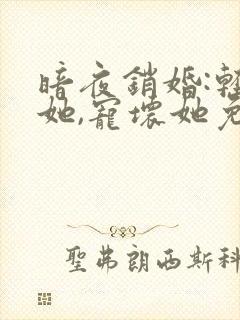 暗夜鎖婚:
她,寵壞她
聖弗朗西斯科